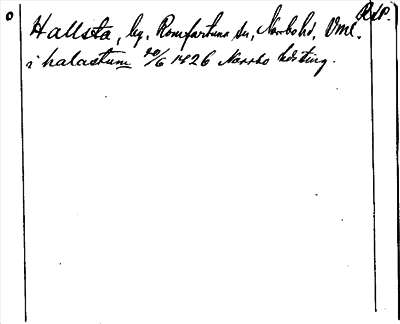 Rsp.
Hallsta, by, Romfartuna sn, Norrbo hd, Vml.
i halastum 20/6 1426 Norrbo häting.